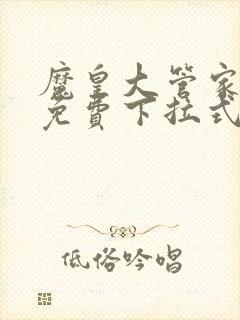 魔皇大管家
免費下拉式
低俗吟唱